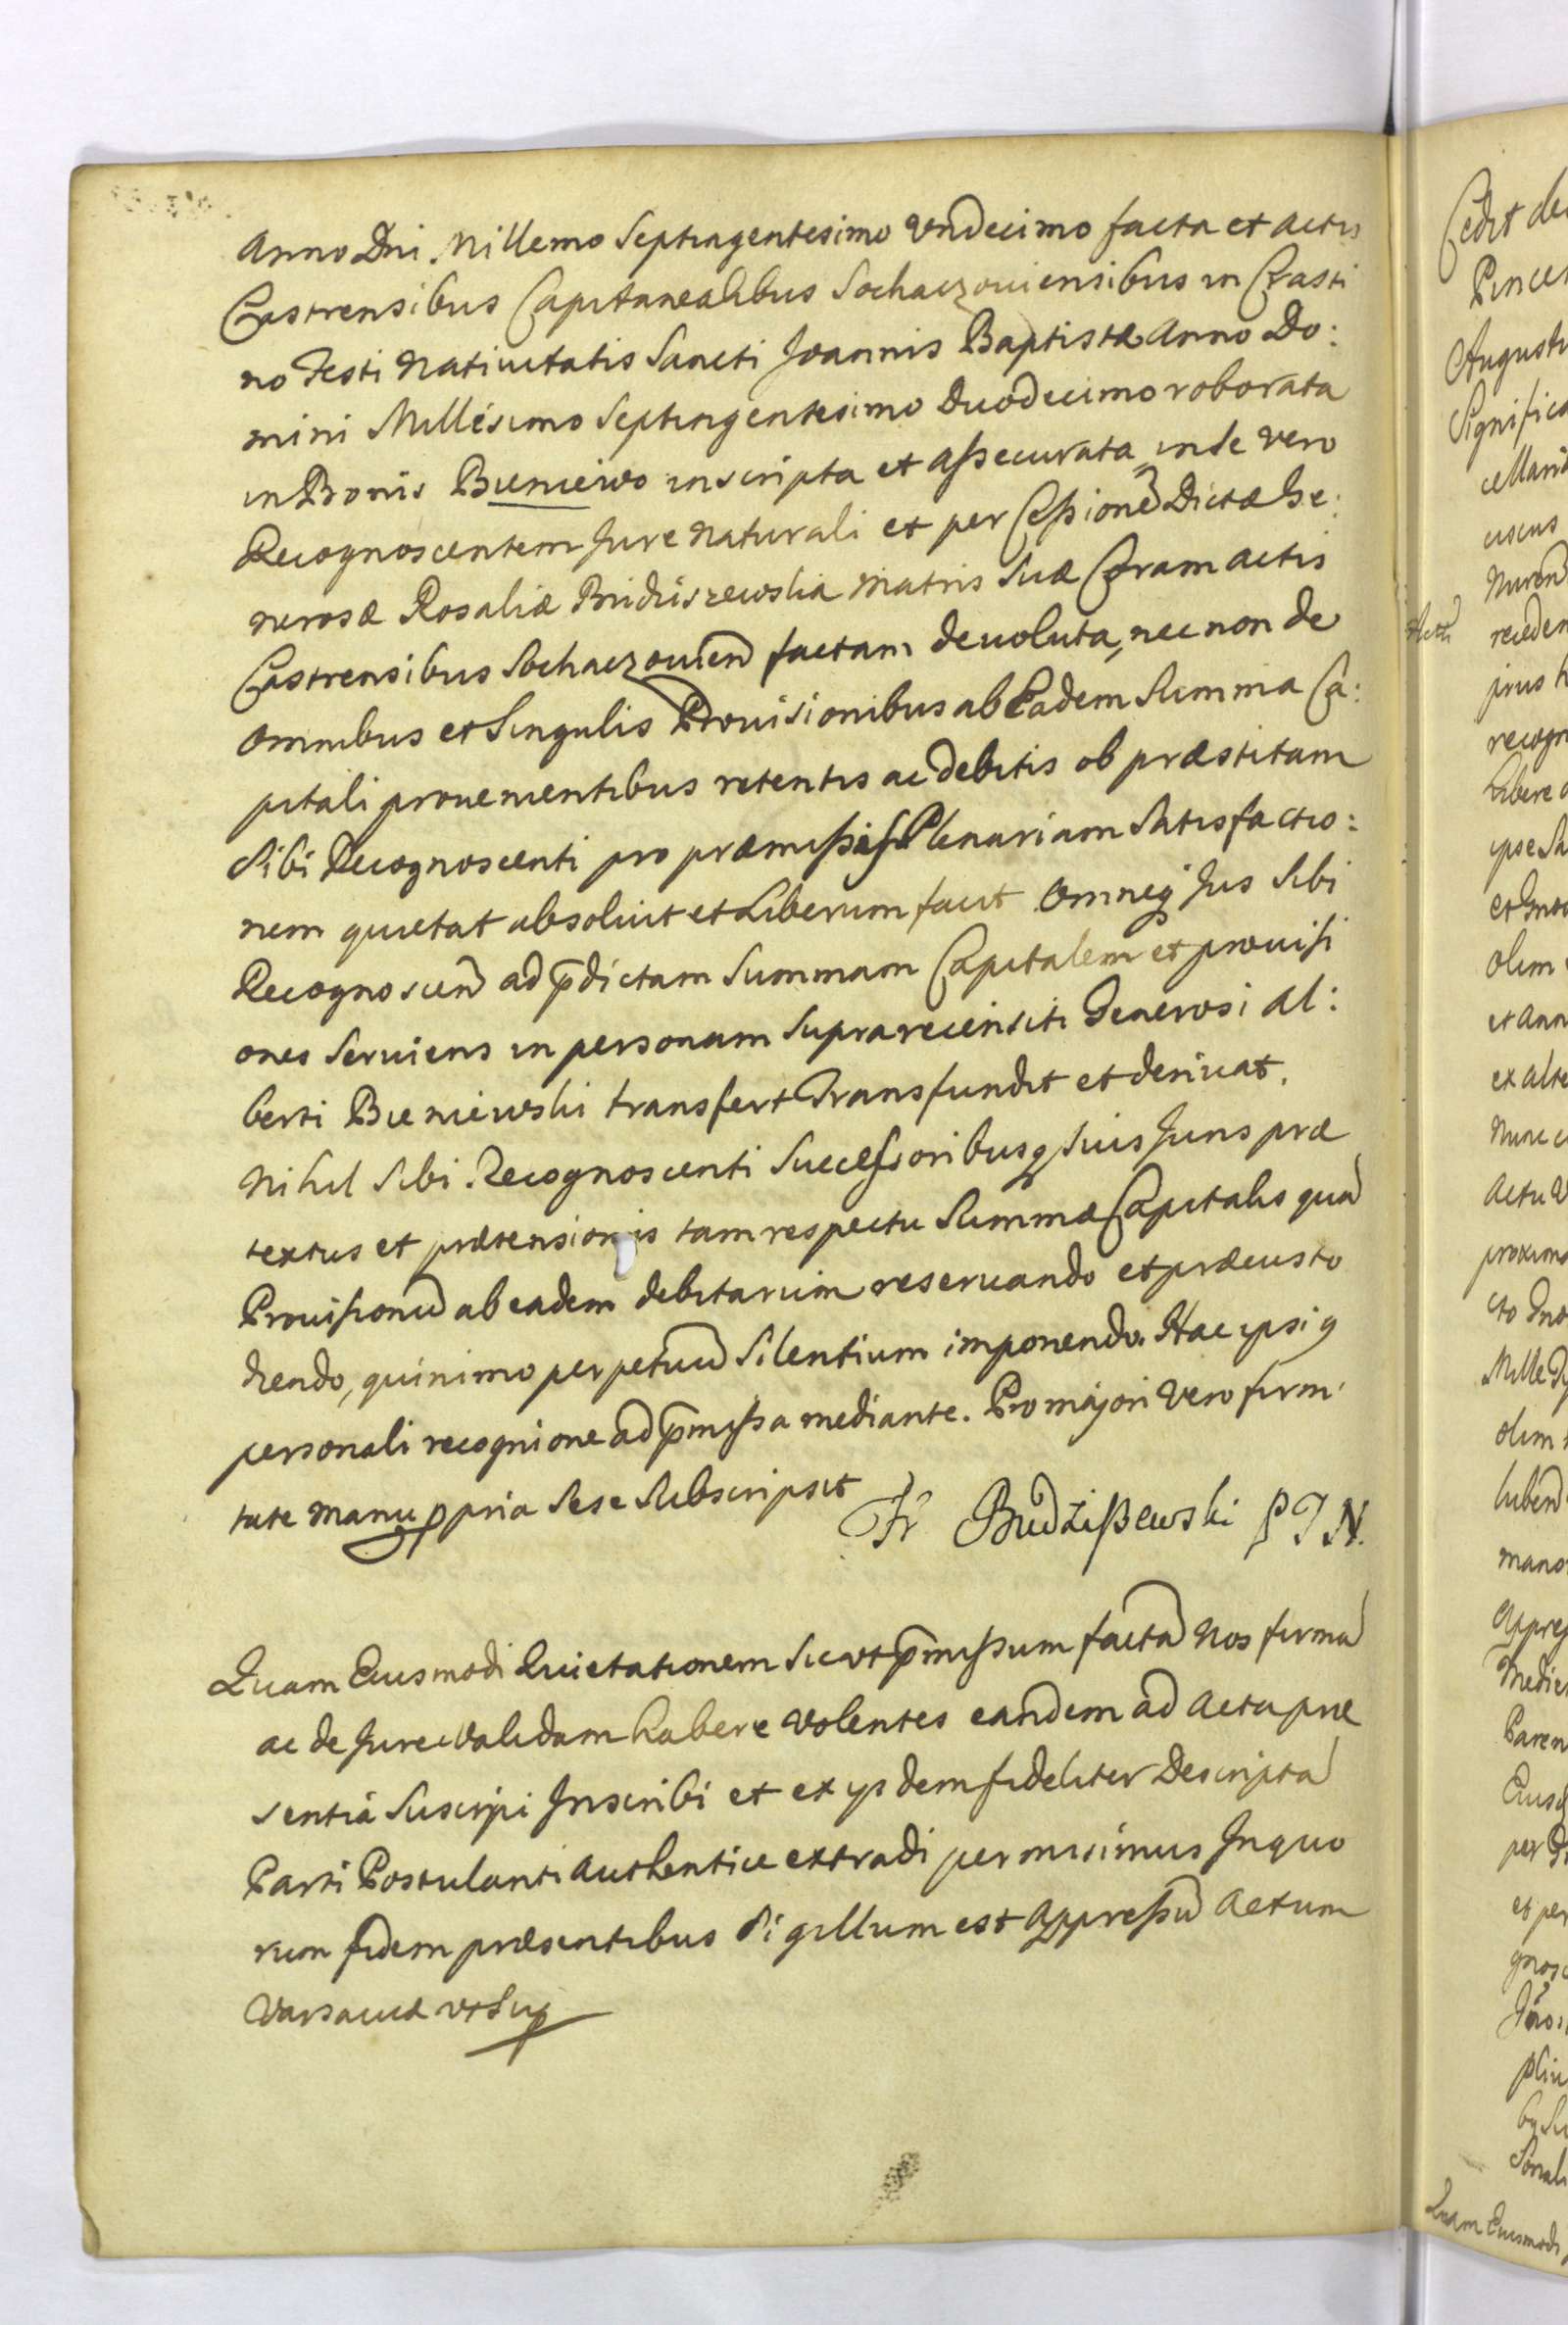 Anno Dni. Millemo Septingentesimo Vndecimo facta et actis
Castrensibus Capitanealibus Sochaczouiensibus in Crasti
no Festi Natiuitatis Sancti Joannis Baptistæ Anno Do:
mini Millesimo Septingentesimo Duodecimo roborata
in Bonis Bieniewo inscripta et assecurata, in se vero
Recognoscentem Jure naturali et per Cessione Dictæ Ge:
nerosæ Rosaliæ Budziszewska Matris Suæ Coram actis
Castrensibus Sochaczouien factam deuoluta, nec non de
omnibus et Singulis Prouisionibus ab Eadem Summa Ca:
pitali prouenientibus retentis ac debitis ob præstitam
Sibi Recognoscenti pro præmissis Plenariam Satisfactio:
nem quietat absoluit et Liberum facit omneq Jus Sibi
Recognoscen ad pdictam Summam Capitalem et prouisi
ones Seruiens in personam Suprarecensiti Generosi Al:
berti Bieniewski transfert Transfundit et deriuat.
Nihil Sibi Recognoscenti Successoribusq Suis Juris præ
textus et prætensionis tam respectu Summæ Capitalis qua
Prouisionu ab eadem debitarum reseruando et præcusto
diendo, quinimo perpetuu Silentium imponendo. Hac ipsi9
personali recognione ad pmissa mediante. Pro majori Vero firmi
tate manu ppria Sese Subscripsit
Fr Budzißewski P J N.
Quam Eiusmodi Quietationem Sicut pmissum facta Nos firma
ac de Jure Validam habere Volentes eandem ad Acta præ
sentia Suscipi Inscribi et ex ijsdem fideliter Descripta
Parti Postulanti Authentice extradi permisimus In quo
rum fidem præsentibus Sigillum est appressu Actum
Varsauiæ vt Sup